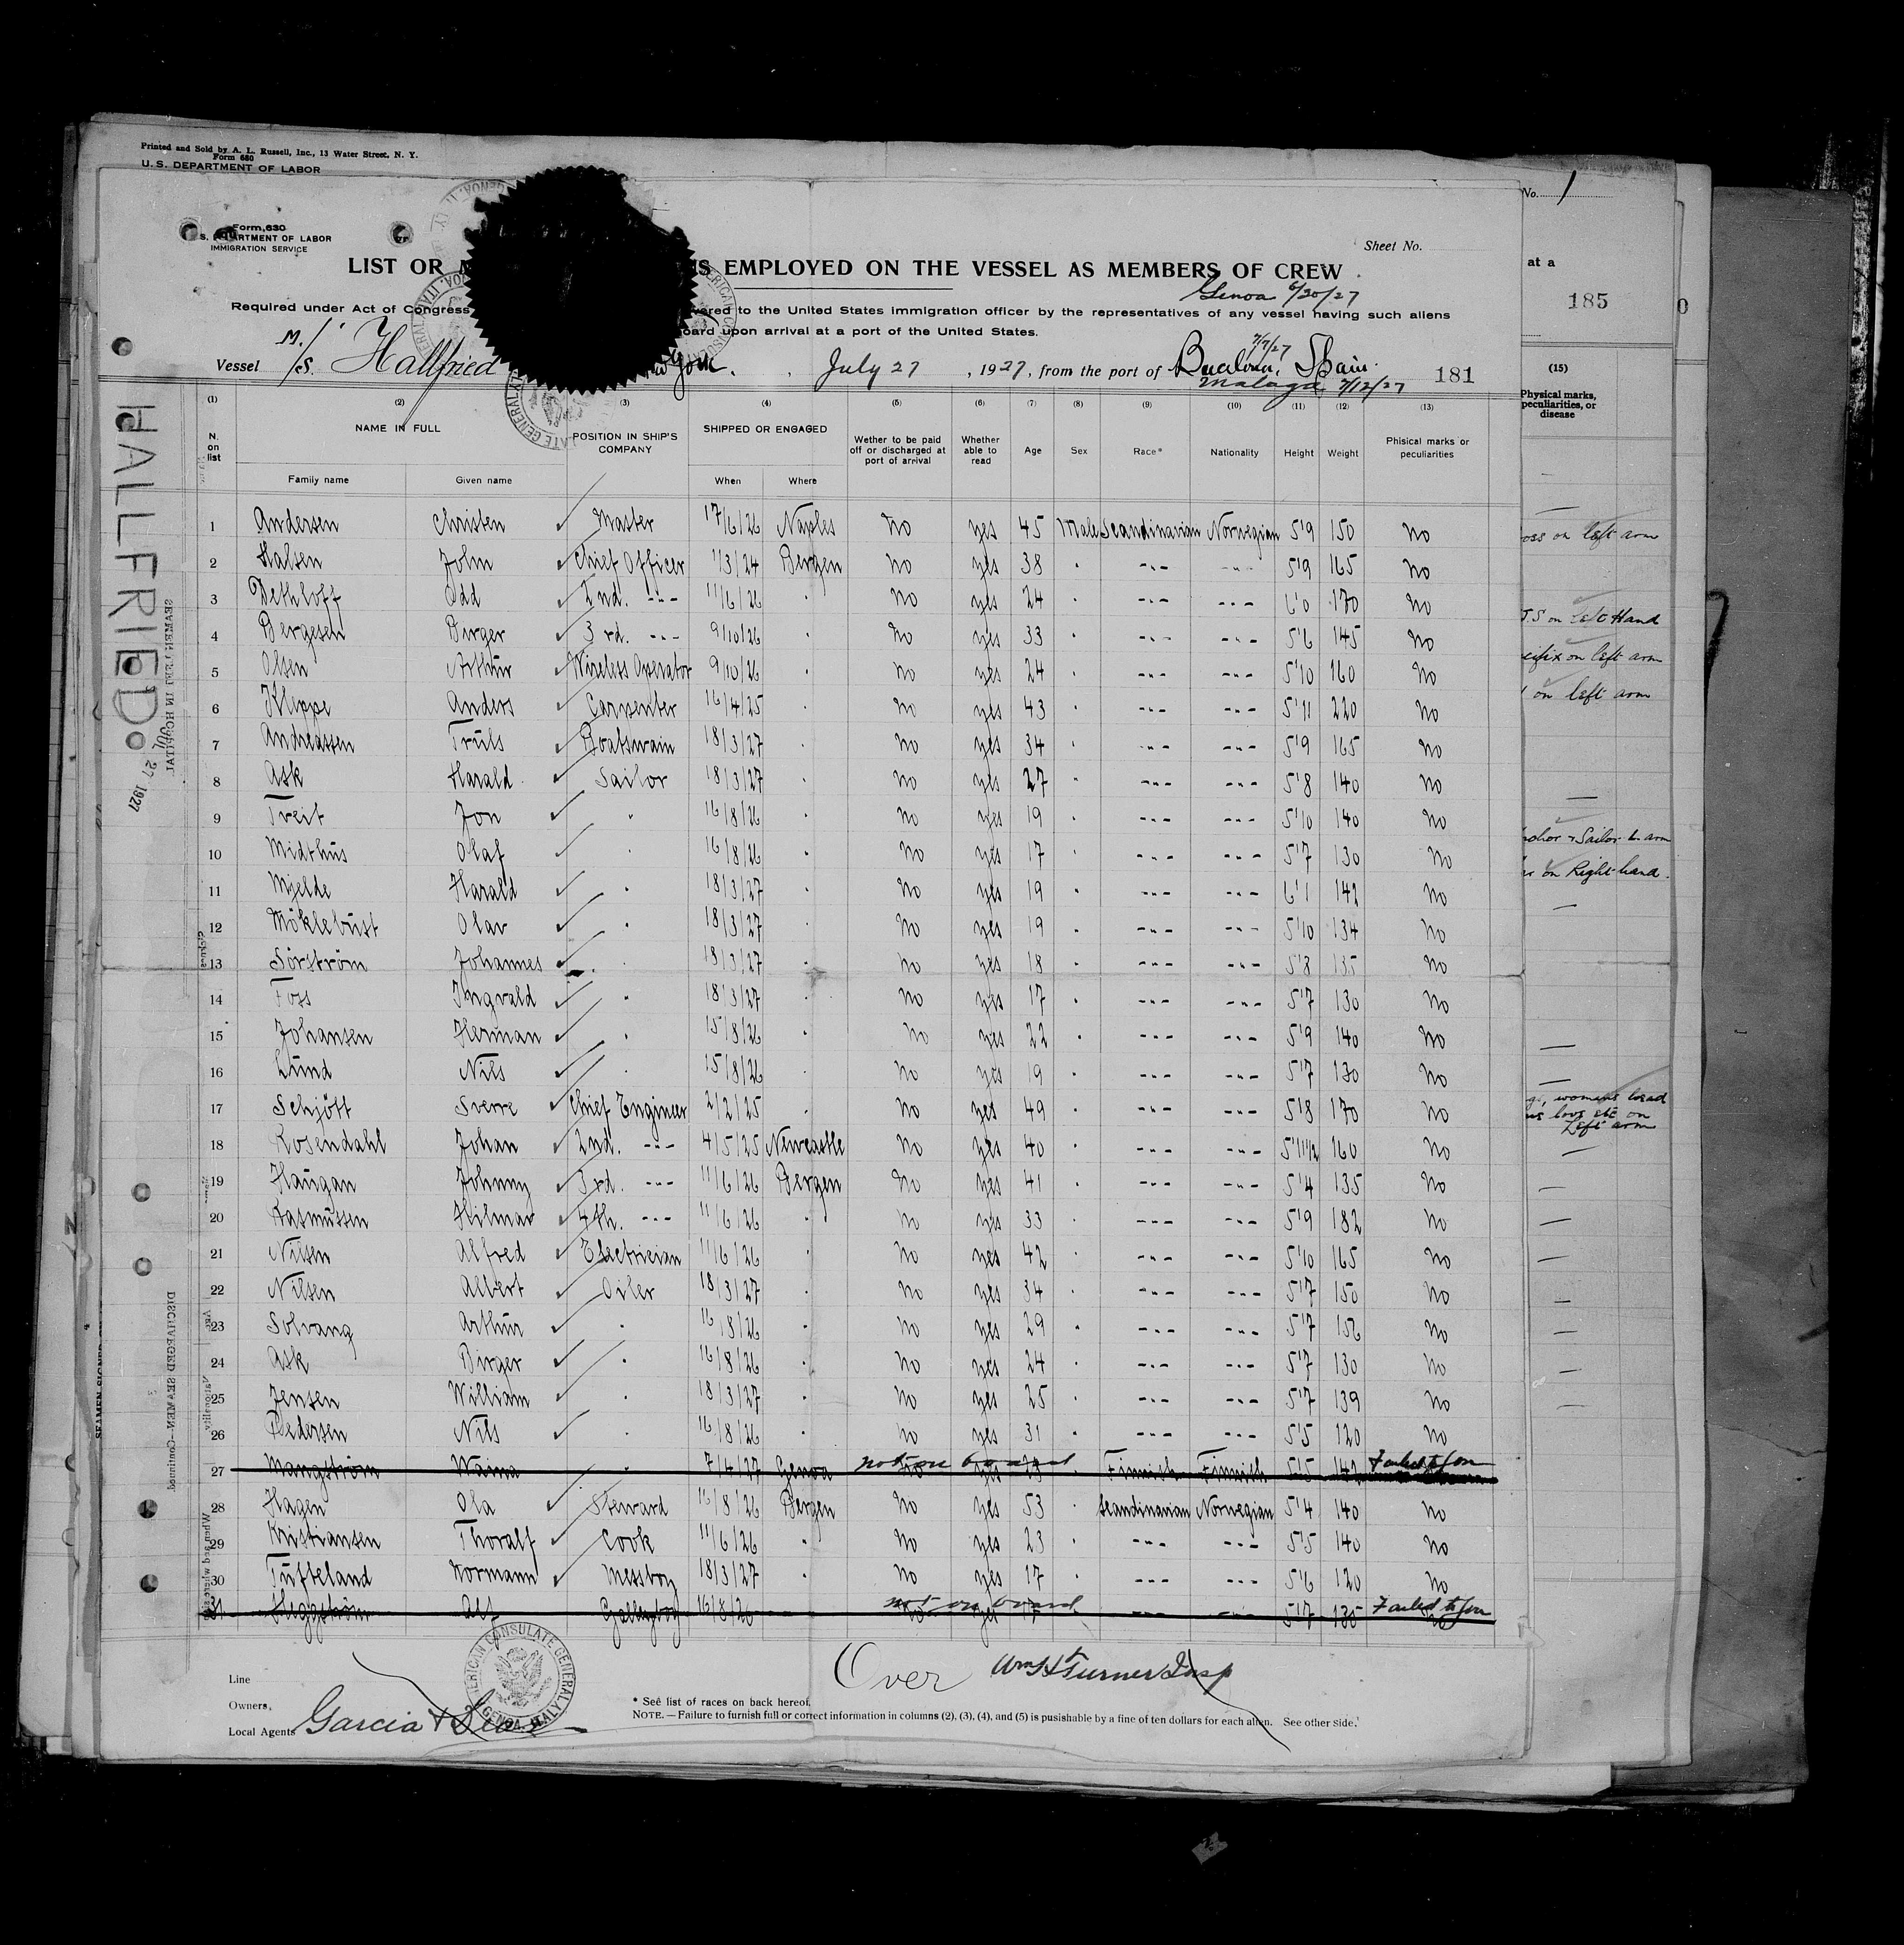 Printed and Sold by A. L. Russell, Inc., 13 Water Street, N. Y.
Form 680
U. S. DEPARTMENT OF LABOR
No. 1
Form 630
S. DEPARTMENT OF LABOR
IMMIGRATION SERVICE
Sheet No.
LIST OR EMPLOYED ON THE VESSEL AS MEMBERS OF CREW
at a
Genoa 6/30/27
185
Required under Act of Congress to the United States immigration officer by the representatives of any vessel having such aliens
board upon arrival at a port of the United States.
7/7/27
Vessel M/S. Hallfried York. July 27, 1927, from the port of Spain. 181
Malaga 7/12/27
(1) (2) (3) (4) (5) (6) (7) (8) (9) (10) (11) (12) (13) (15)
N. on list NAME IN FULL POSITION IN SHIP'S COMPANY SHIPPED OR ENGAGED Wether to be paid off or discharged at port of arrival Whether able to read Age Sex Race* Nationality Height Weight Phisical marks or peculiarities Physical marks, peculiarities, or disease
Family name Given name When Where
1 Andersen Christen Master 17/6/26 Naples No yes 45 Male Scandinavian Norwegian 5'9 150 No
2 Halsen John Chief Officer 1/3/24 Bergen No yes 38 --- --- 5'9 165 No
3 Dethloff Odd 2nd. --- 11/6/26 No yes 24 --- --- 6'0 170 No
4 Bergesen Birger 3rd. --- 9/10/26 No yes 33 --- --- 5'6 145 No
5 Olsen Arthur Wireless Operator 9/10/26 No yes 24 --- --- 5'10 160 No
6 Kleppe Anders Carpenter 16/4/25 No yes 43 --- --- 5'11 220 No
7 Andreassen Truls Boatswain 18/3/27 No yes 34 --- --- 5'9 165 No
8 Ask Harald Sailor 18/3/27 No yes 27 --- --- 5'8 140 No
9 Treit Jon 16/8/26 No yes 19 --- --- 5'10 140 No
10 Midthus Olaf 16/8/26 No yes 17 --- --- 5'7 130 No
11 Mjelde Harald 18/3/27 No yes 19 --- --- 6'1 142 No
12 Möklebust Olav 18/3/27 No yes 19 --- --- 5'10 134 No
13 Sörström Johannes 18/3/27 No yes 18 --- --- 5'8 135 No
14 Foss Ingvald 18/3/27 No yes 17 --- --- 5'7 130 No
15 Johansen Herman 15/8/26 No yes 22 --- --- 5'9 140 No
16 Lund Nils 15/8/26 No yes 19 --- --- 5'7 130 No
17 Schjött Sverre Chief Engineer 2/2/25 No yes 49 --- --- 5'8 170 No
18 Rosendahl Johan 2nd. --- 4/5/25 Newcastle No yes 40 --- --- 5'11½ 160 No
19 Haugan Johnny 3rd. --- 11/6/26 Bergen No yes 41 --- --- 5'4 135 No
20 Rasmussen Hilmar 4th. --- 11/6/26 No yes 33 --- --- 5'9 182 No
21 Nilsen Alfred Electrician 11/6/26 No yes 42 --- --- 5'10 165 No
22 Nilsen Albert Oiler 18/3/27 No yes 34 --- --- 5'7 150 No
23 Solvang Arthur 16/8/26 No yes 29 --- --- 5'7 No
24 Ask Birger 16/8/26 No yes 24 --- --- 5'7 130 No
25 Jensen William 18/3/27 No yes 25 --- --- 5'7 139 No
26 Pedersen Nils 16/8/26 No yes 31 --- --- 5'5 120 No
27 Mangström Waina 7/4/27 Genoa not on board Finnish Finnish 5'5 142 Failed to join
28 Hagen Ola Steward 16/8/26 Bergen No yes 53 Scandinavian Norwegian 5'4 140 No
29 Kristiansen Thoralf Cook 11/6/26 No yes 23 --- --- 5'5 140 No
30 Tufteland Normann Messboy 18/3/27 No yes 17 --- --- 5'6 120 No
31 Alf Galleyboy 16/8/26 not on board 17 --- --- 5'7 130 Failed to join
on left arm
on Left Hand
on left arm
on left arm
Sailor L arm
on Right hand.
womans head
love etc on
Left arm
HALLFRIED
JUL 27 1927
SEAMEN LEFT IN HOSPITAL
DISCHARGED SEAMEN—Continued
AMERICAN CONSULATE GENERAL
GENOA, ITALY
Over Wm H Turner Insp
Line
Owners,
Local Agents Garcia &
* See list of races on back hereof.
NOTE. — Failure to furnish full or correct information in columns (2), (3), (4), and (5) is pusishable by a fine of ten dollars for each alien. See other side.